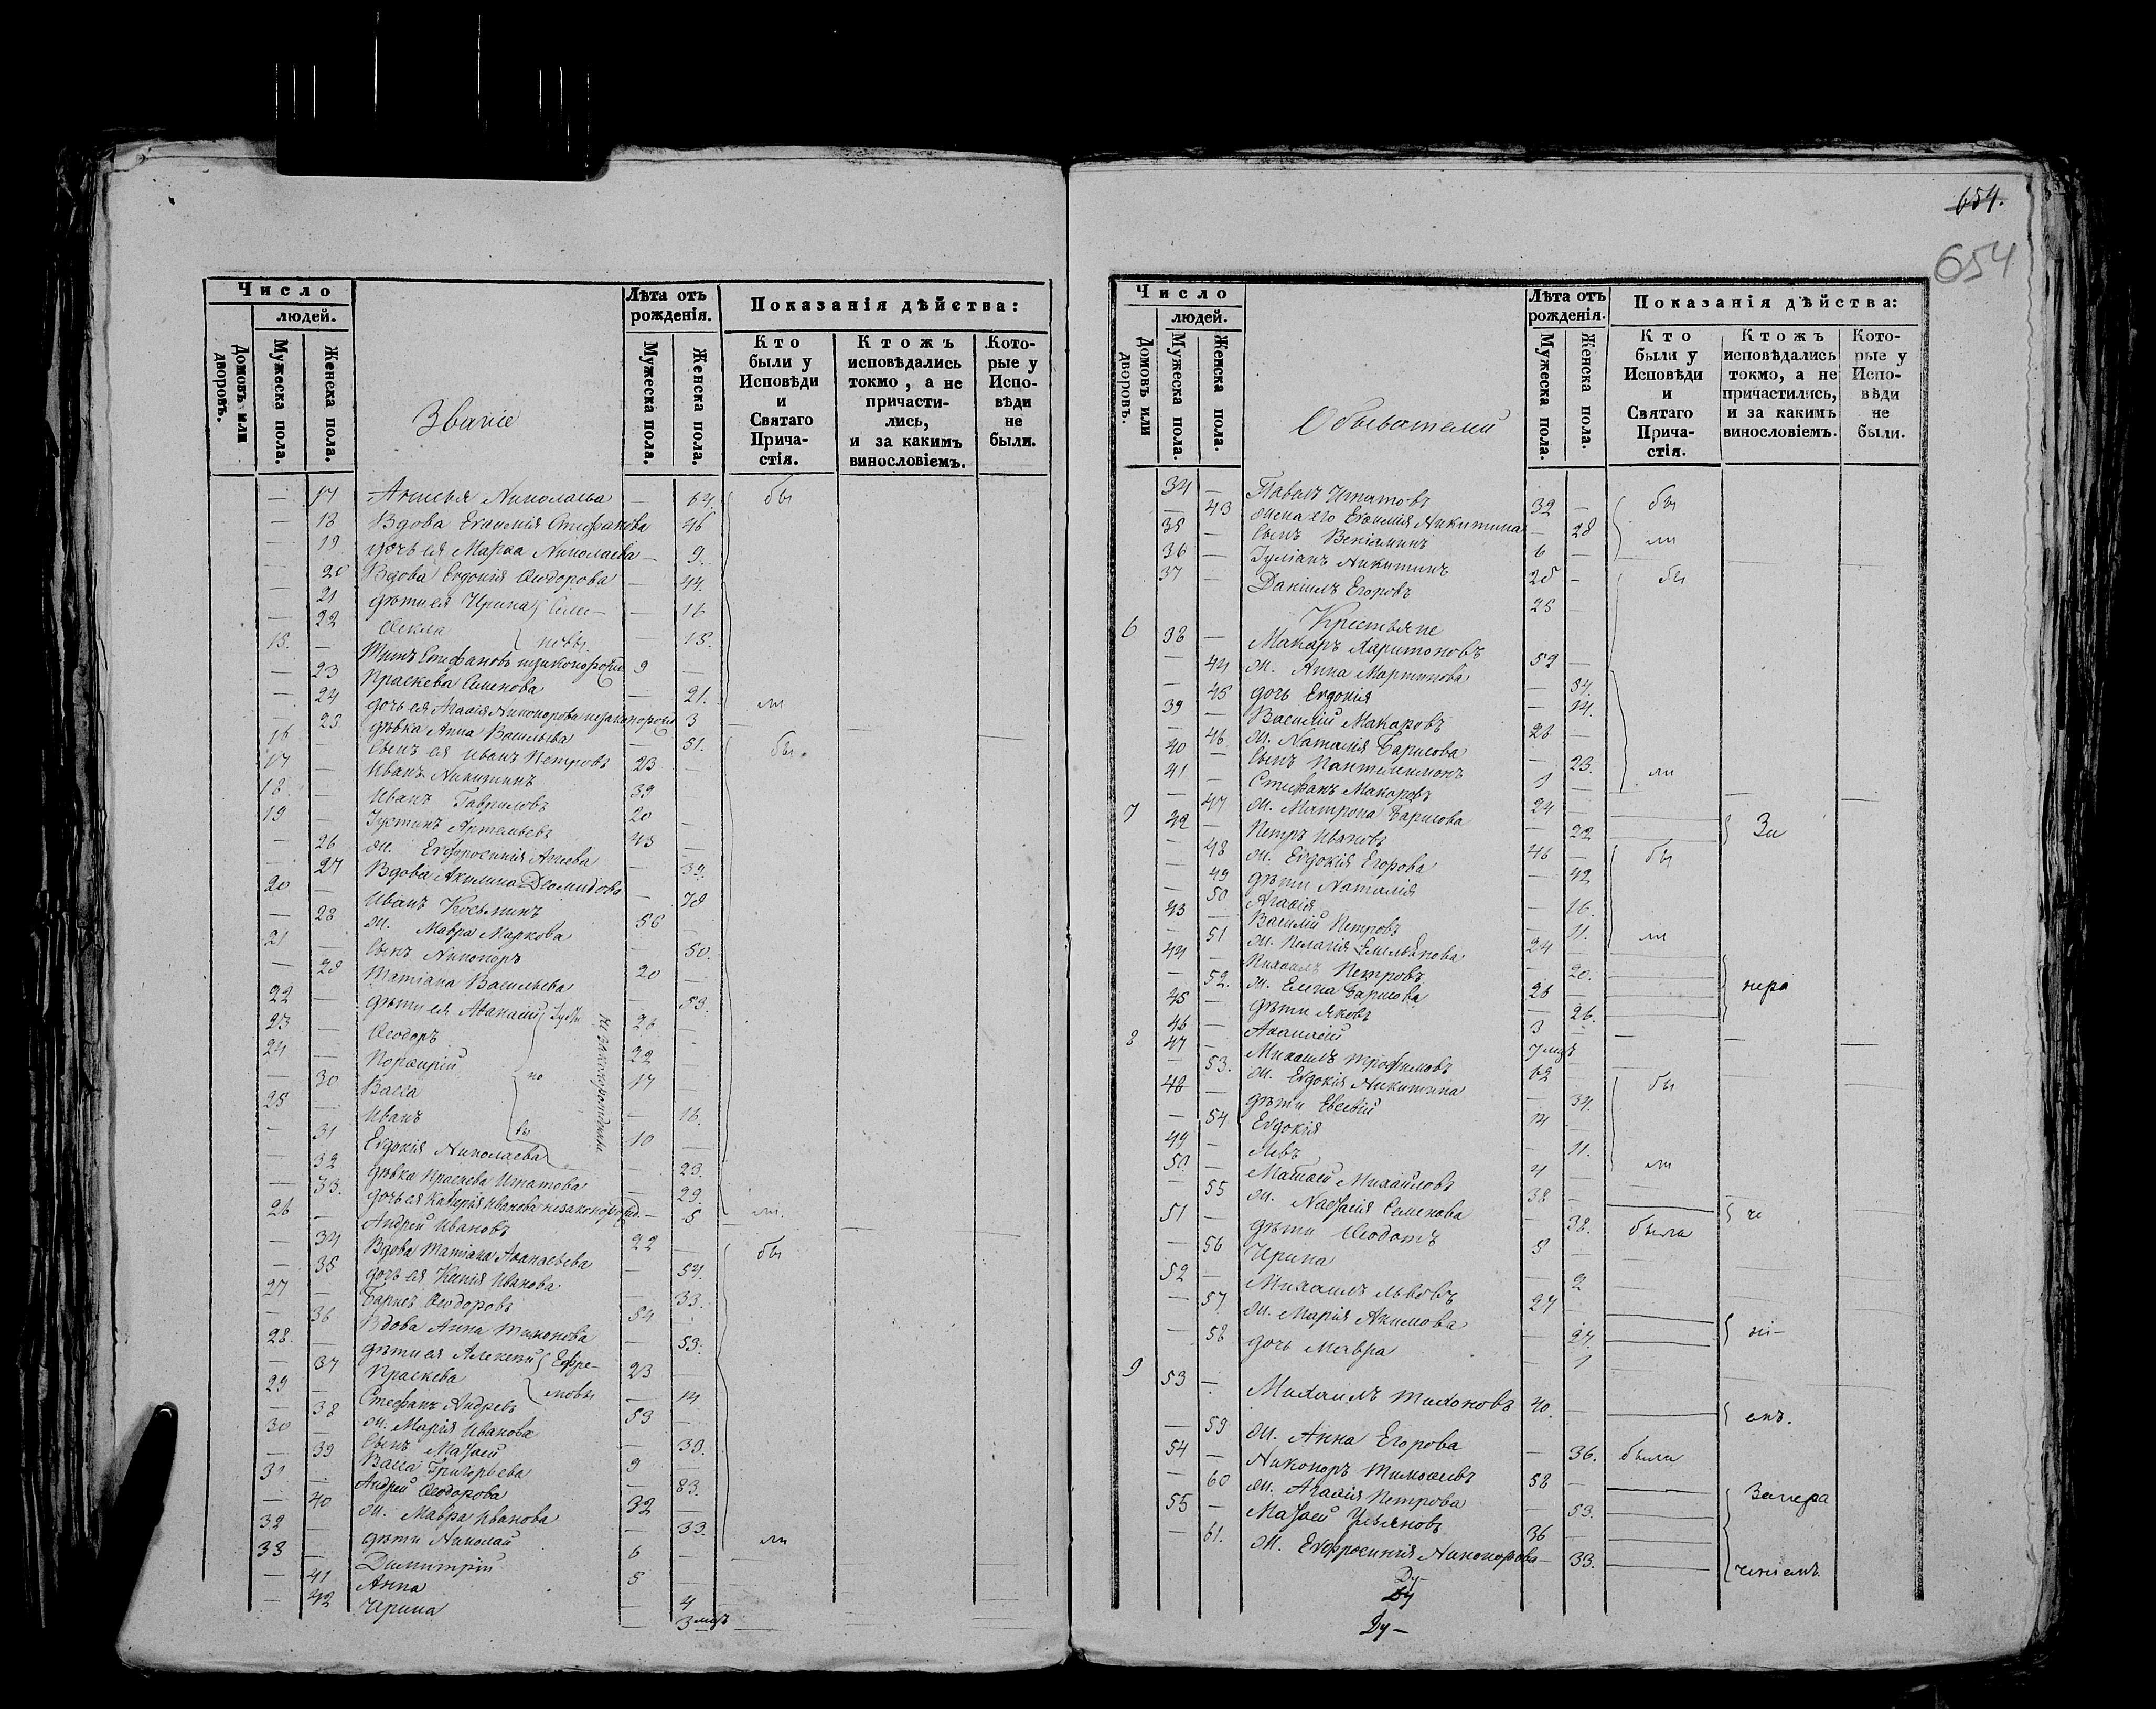 654.
654
Число
людей.
Домовъ или дворовъ.
Мужеска пола.
Женска пола.
Званіе
Лѣта отъ рожденія.
Мужеска пола.
Женска пола.
Показанія дѣйства:
Кто были у Исповѣди и Святаго Прича-стія.
Ктожъ исповѣдались токмо, а не причасти-лись, и за какимъ винословіемъ.
Кото-рые у Испо-вѣди не были.
— 17 — 64. бы
— 18 Вдова Евѳимія Стефанова 46
— 19 дочь ея Марѳа Николаева — 9.
— 20 Вдова Евдокія Ѳеодорова — 44.
— 21 дѣти ея Ирина Симо- — 16
— 22 Ѳекла новы — 15.
15. — Титъ Стефановъ незаконорожд 9 —
— 23 Праскева Симонова — 21.
— 24 дочь ея Агаѳія Никонорова незаконорожд 3 ли
— 25 дѣвка Анна Васильева — 51. бы
16 — сынъ ея Иванъ Петровъ 23 —
17 — Иванъ Никитинъ 39
18. — Иванъ Гавриловъ 20 —
19 — Іустинъ Артемьевъ 43 —
— 26 ж. Евфросинія — 39.
— 27 Вдова Акилина Діомидова — 70
20 — Иванъ Косьминъ 56 —
— 28 ж. Мавра Маркова — 50.
21 — сынъ Никоноръ 20 —
— 29 Татіана Васильева — 53.
22 — дѣти ея Аѳанасій 26 —
23 — Ѳеодоръ 22 —
24 — Порфирій 17 —
— 30 Васса но — 16.
25 — Иванъ вы 10 —
незаконорожденные
— 31 Евдокія Николаева — 23.
— 32 дѣвка Праскева Игнатова — 29.
— 33. дочь ея Катерина Иванова незаконорожд. — 5 ли.
26 — Андрей Ивановъ 22 — бы
— 34 Вдова Татіана Аѳанасьева — 54.
— 35 дочь ея Ксенія Иванова — 33.
27 — Борисъ Ѳеодоровъ 54
— 36 Вдова Анна Тихонова — 53.
28. — дѣти ея Алексѣй Ефре- 23 —
— 37 Праскева мовы — 14
29 — Стефанъ Андреевъ 53 —
— 38 ж. Марія Иванова — 39.
30 — сынъ Матѳей 9 —
— 39 Васса Григорьева — 83.
31 — Андрей Ѳеодорова 32 —
— 40 ж. Мавра Иванова — 33. ли
32 — дѣти Николай 6 —
33 — Димитрій 5 —
— 41 Анна — 4
— 42 Ирина — 3 мцъ
Число
людей.
Домовъ или дворовъ.
Мужеска пола.
Женска пола.
Обывателей
Лѣта отъ рожденія.
Мужеска пола.
Женска пола.
Показанія дѣйства:
Кто были у Исповѣди и Святаго Прича-стія.
Ктожъ исповѣдались токмо, а не причастились, и за какимъ винословіемъ.
Кото-рые у Испо-вѣди не были.
34 — Павелъ Игнатовъ 32 — бы
— 43 жена его Евѳимія Никитина — 28 ли
35 — сынъ Веніаминъ 6 —
36 — Іуліанъ Никитинъ 20 — бы
37 — Даніилъ Егоровъ 25 —
Крестьяне
6 38 — Макаръ Харитоновъ 52 —
— 44 ж. Анна Мартинова — 54.
— 45 дочь Евдокія — 14.
39 — Василій Макаровъ 26 —
— 46 ж. Наталія Барисова — 23. ли
40 — сынъ Пантелеимонъ 1 —
41 — Стефанъ Макаровъ 24 За
— 47 ж. Матрона Барисова — 22
7 42 — Петръ Ивановъ 46 — бы
— 48 ж. Евдокія Егорова — 42
— 49 дѣти Наталія — 16.
— 50 Агаѳія — 11. ли
43 — Василій Петровъ 24
— 51 ж. Пелагія Емельянова — 20. нера
44 — Михаилъ Петровъ 26
— 52. ж. Елена Барисова — 26.
45 — дѣти Яковъ 3 —
46 — Аѳанасій 7 мцъ
8 47 — Михаилъ Трофимовъ 62 бы
— 53. ж. Евдокія Никитина — 34.
48 — дѣти Евсевій 14
— 54 Евдокія — 11.
49 — Левъ 4 ли
50. — Матѳей Михайловъ 38 — че
— 55 ж. Настасія Семенова — 38. была
51 — дѣти Ѳеодотъ 5 —
— 56 Ирина — 2
52 — Михаилъ Львовъ 27 ні-
— 57 ж. Марія Акимова — 27.
— 58 дочь Мавра — 1
9 53 — Михаилъ Тихоновъ 40. — емъ.
— 59 ж. Анна Егорова — 36. была
54 — Никоноръ Тимоѳеевъ 58 — Занера
— 60 ж. Агаѳія Петрова — 53.
55 — Матѳей Ульяновъ 36 —
— 61. ж. Евфросинія Никонорова — 33. ченіемъ.
Ду-
Ду
Ду-